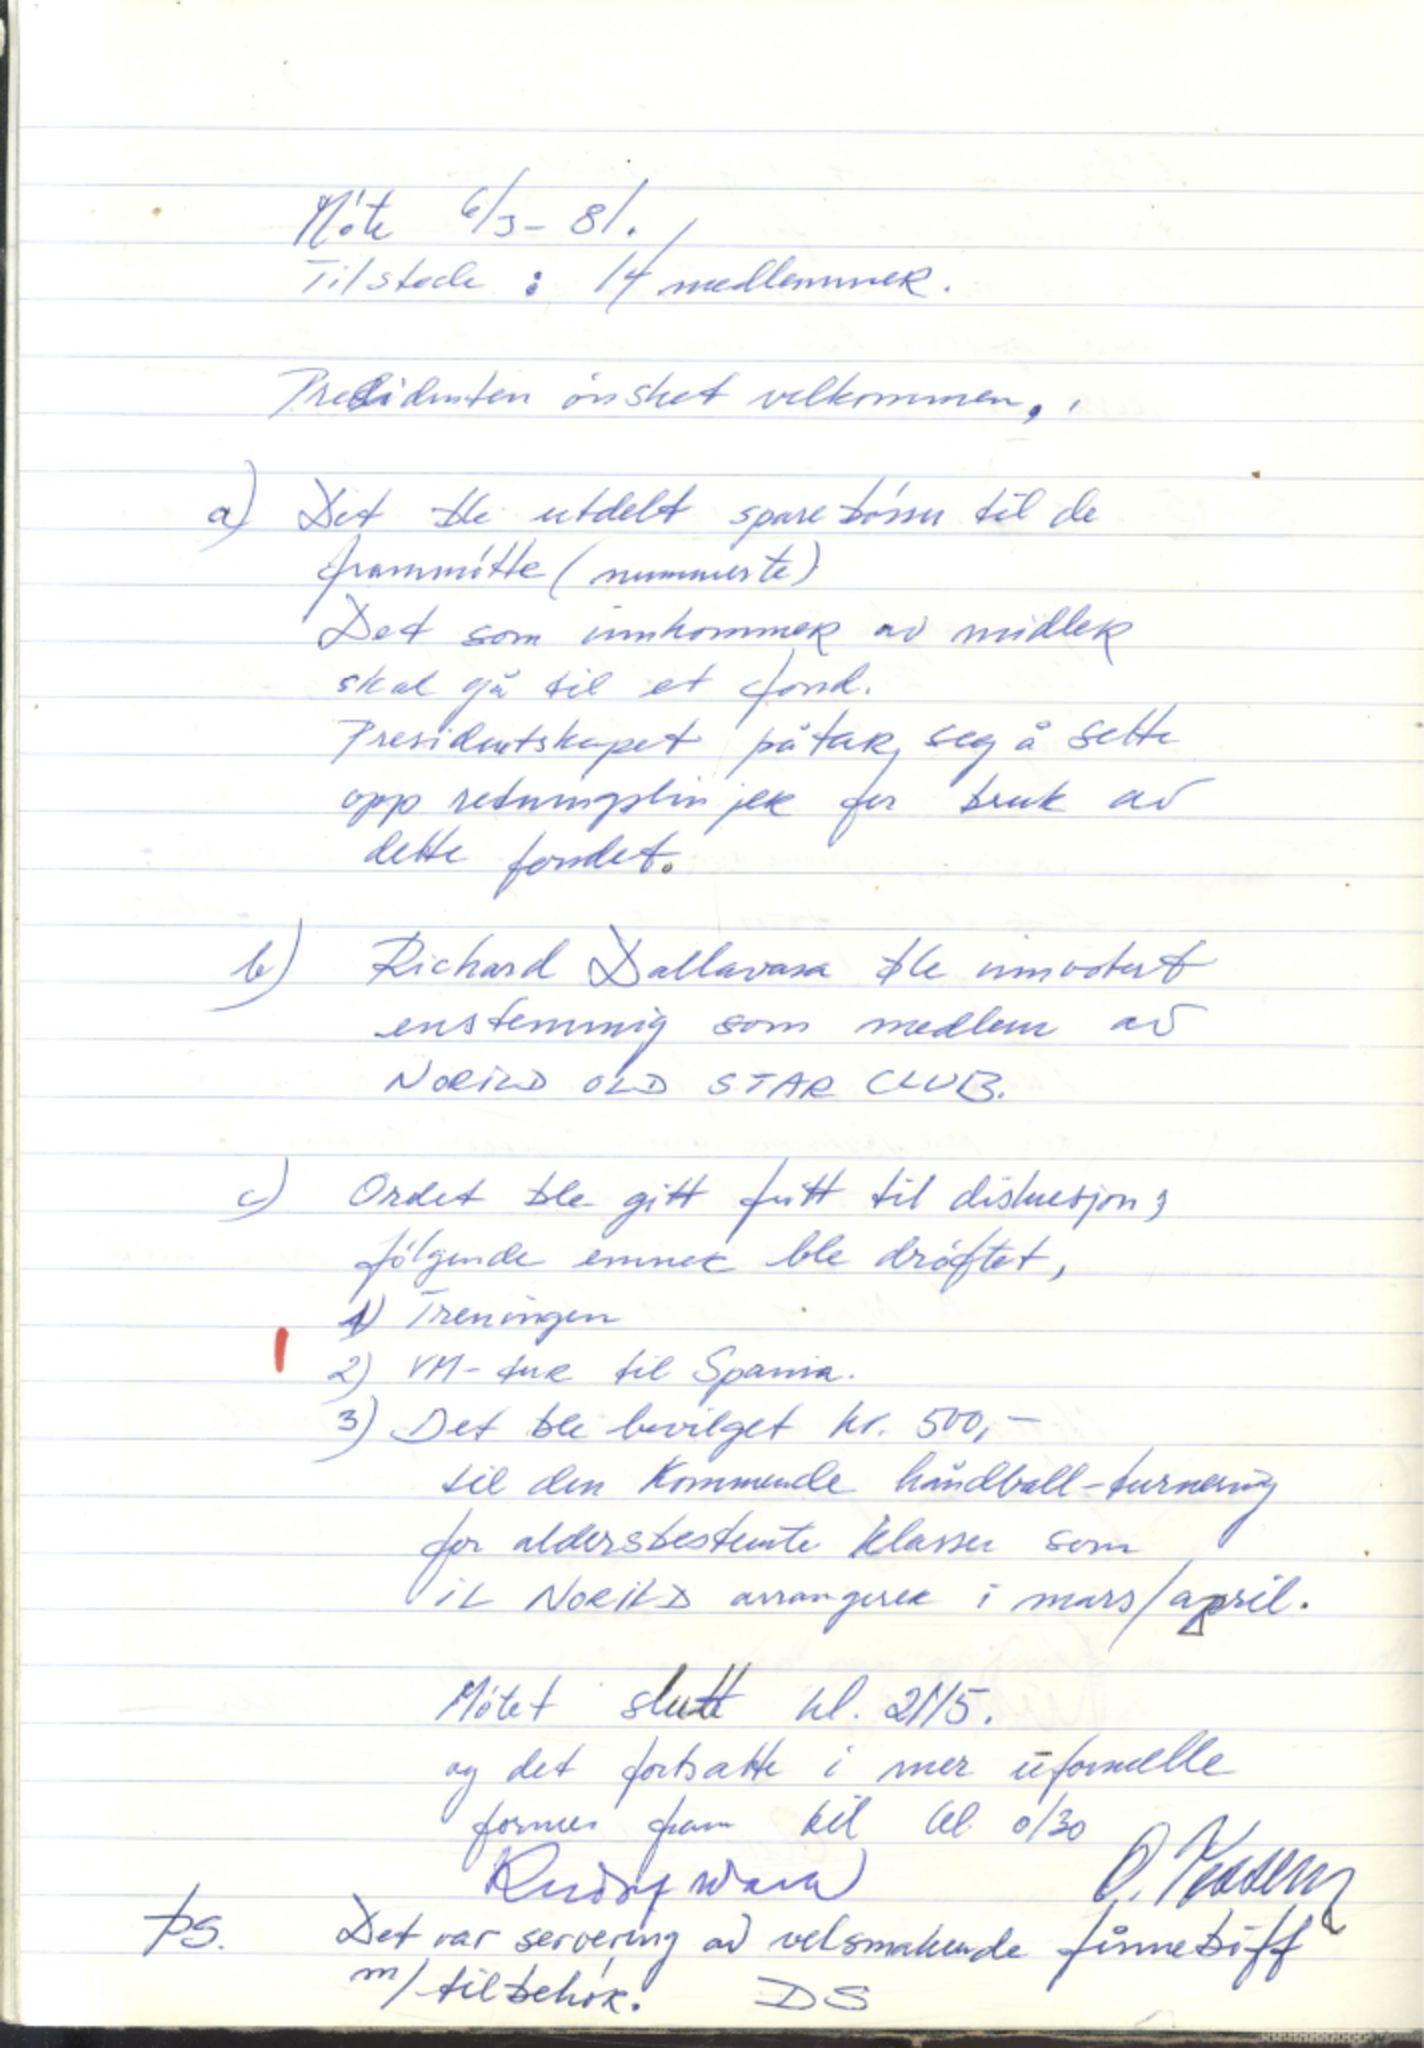 Möte 6/3-81.
Tilstede : 14 medlemmer.
Presidenten önsket velkommen,.
a) Det ble utdelt sparebösser til de
frammötte (nummerte)
Det som innkommer av midler
skal gå til et fond.
Presidentskapet påtar, seg å sette
opp retningslinjer for bruk av
dette fondet.
b) Richard Dallavara ble innvotert
enstemmig som medlem av
NORILD OLD STAR CLUB.
c) Ordet ble gitt fritt til diskusjon,
fölgende emner ble dröftet,
1) Treningen
2) VM-tur til Spania.
3) Det ble bevilget kr. 500,-
til den kommende håndball-turnering
for aldersbestemte klasser som
iL NORILD arrangerer i mars/april.
Mötet slutt kl. 2115.
og det fortsatte i mer uformelle
former fram til kl 0130
PS. Det var servering av velsmakende finnebiff
m/tilbehör. DS